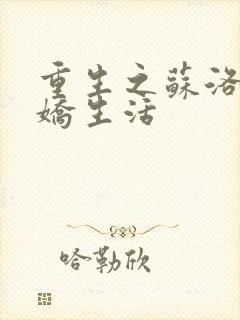 重生之蘇洛
嬌生活
哈勒欣